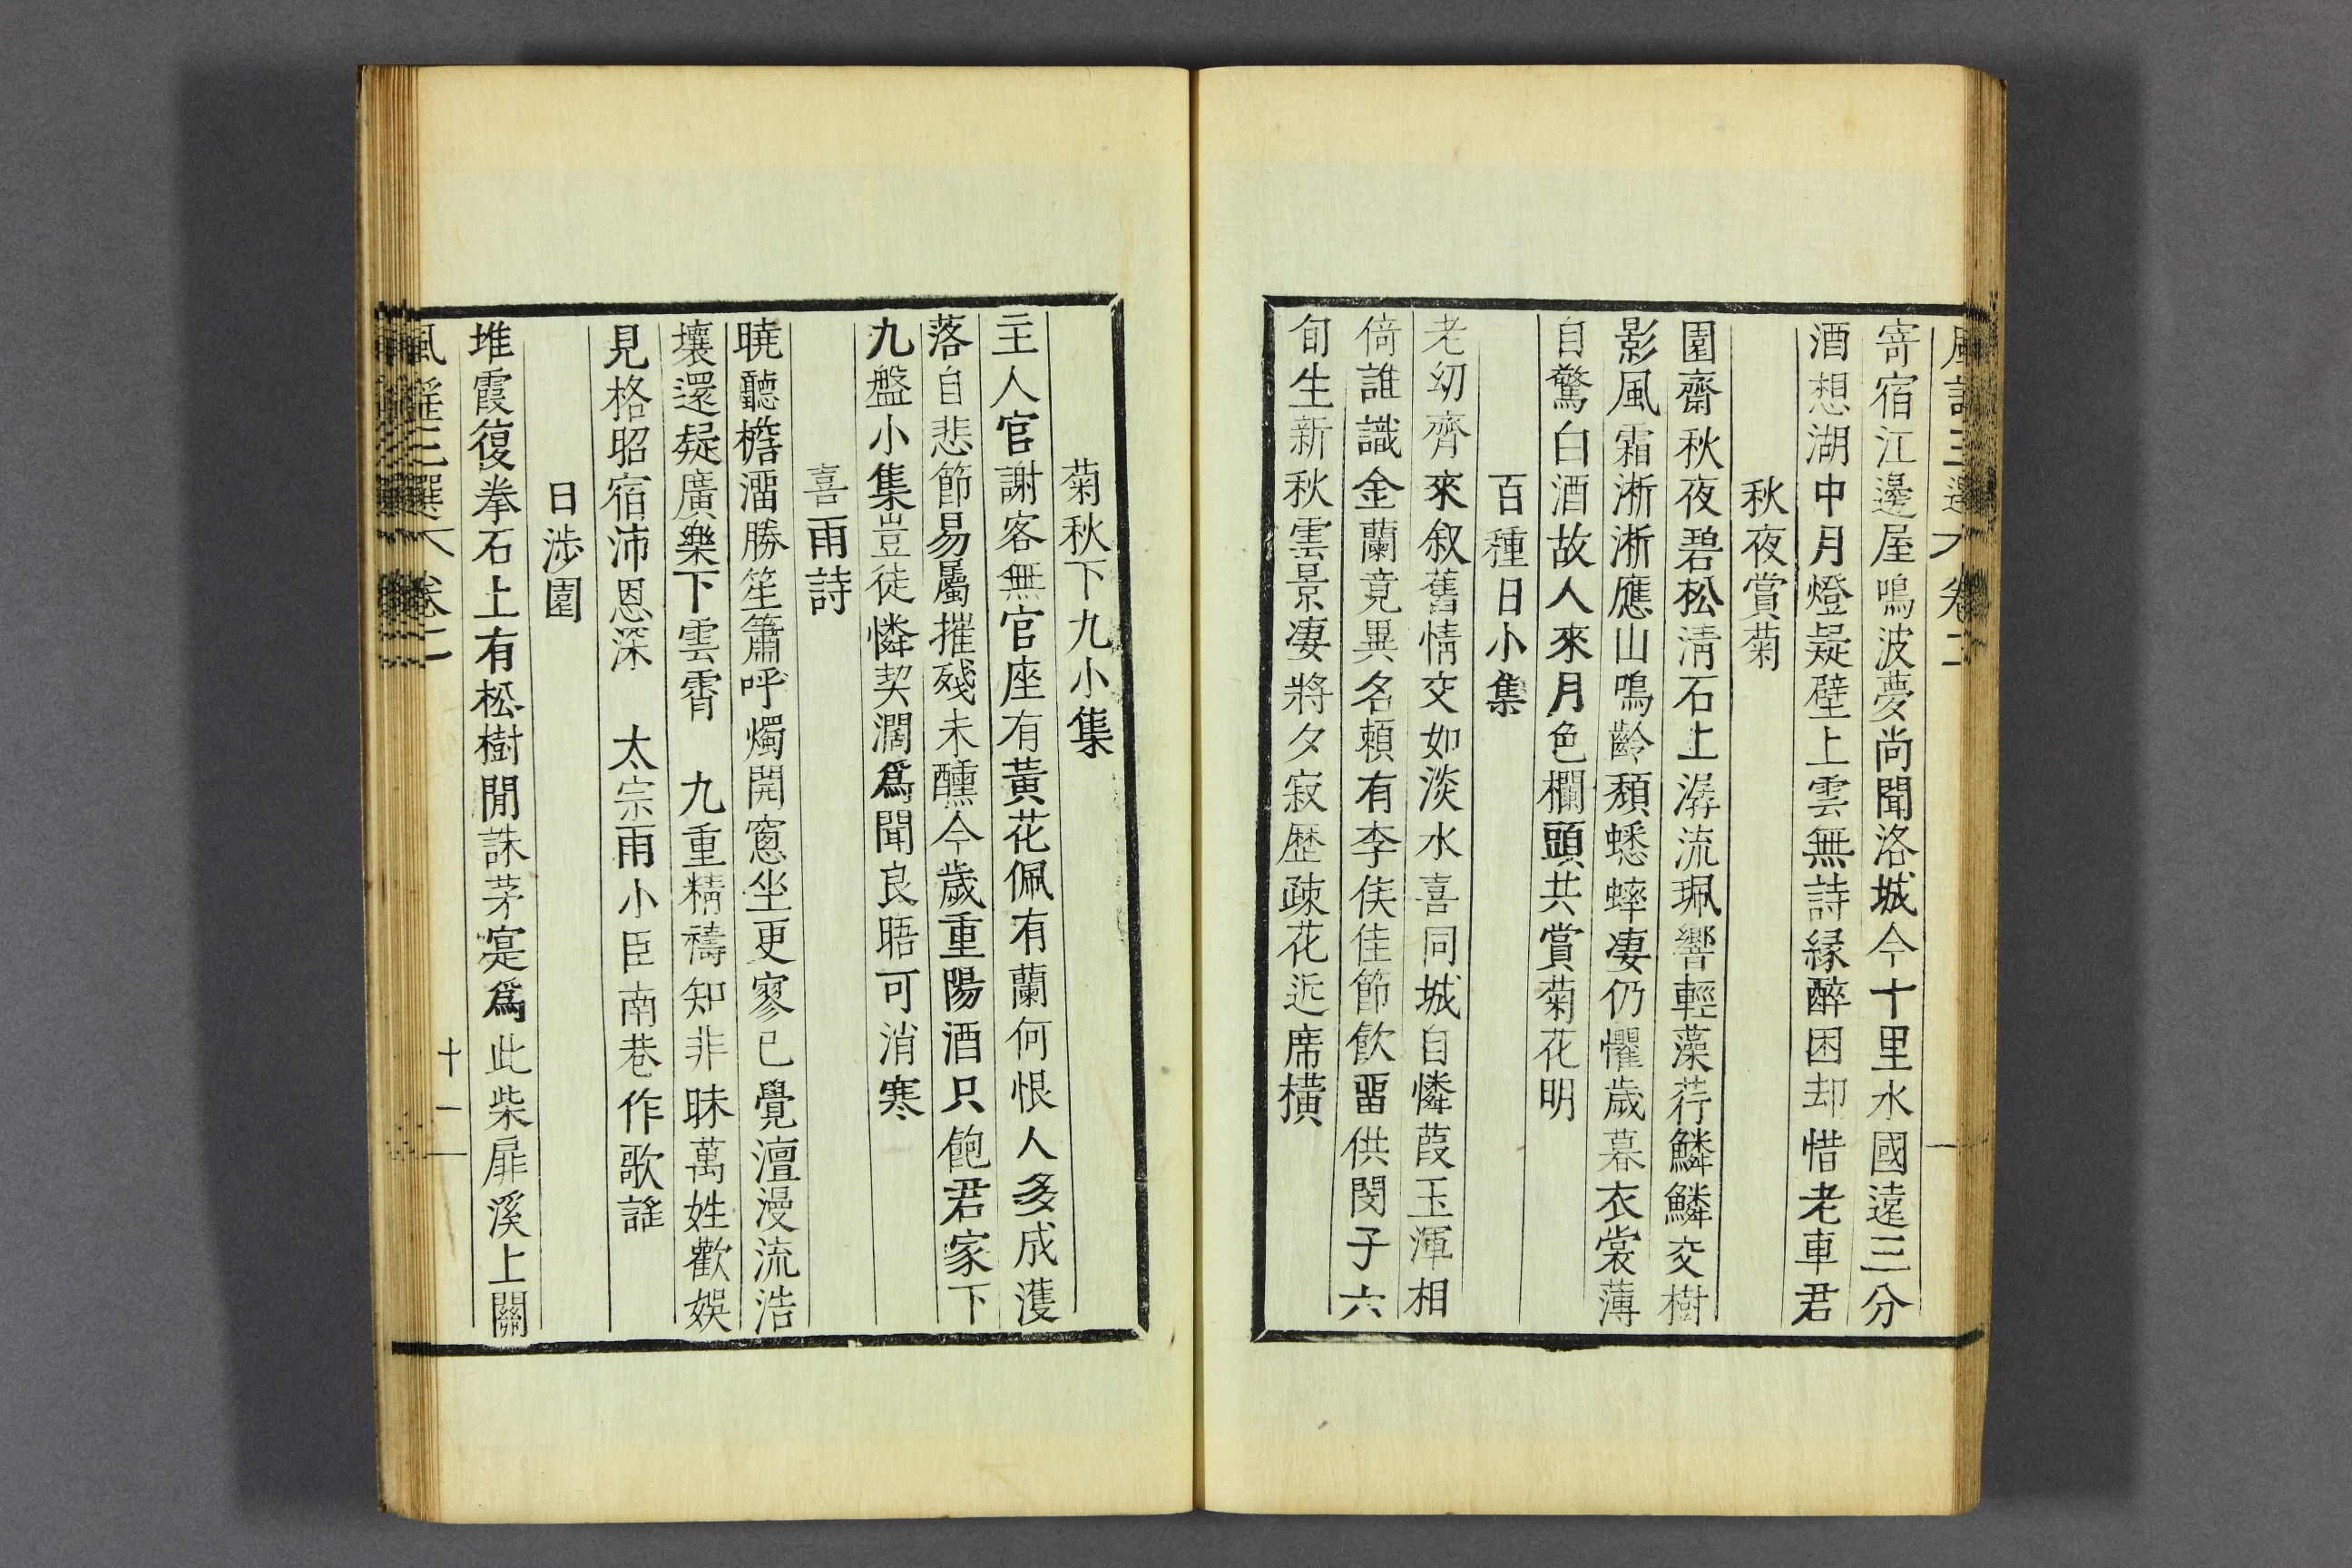 寄宿江邊屋鳴波夢尚聞洛城今十里水國遠三分
酒想湖中月燈疑壁上雲無詩緣醉困却惜老車君
秋夜賞菊
園齋秋夜碧松清石上潺流珮響輕藻荇鱗鱗交樹
影風霜淅淅應山鳴齡頹蟋蟀凄仍懼歲暮衣裳薄
自驚白酒故人來月色欄頭共賞菊花明
百種日小集
老幼齊來叙舊情交如淡水喜同城自憐葭玉渾相
倚誰識金蘭竟異名賴有李侯佳節飮畱供閔子六
旬生新秋雲景凄將夕寂歷疎花近席橫
菊秋下九小集
主人官謝客無官座有黃花佩有蘭何恨人多成濩
落自悲節易屬摧殘未醺今歲重陽酒只飽君家下
九盤小集豈徒憐契濶爲聞良晤可消寒
喜雨詩
曉聽檐溜勝笙簫呼燭開窓坐更寥已覺澶漫流浩
壤還疑廣樂下雲霄 九重精禱知非昧萬姓歡娛
見格昭宿沛恩深 太宗雨小臣南巷作歌謠
日涉園
堆霞復拳石上有松樹閒誅茅寔爲此柴扉溪上關
風謠三選 卷二
十一